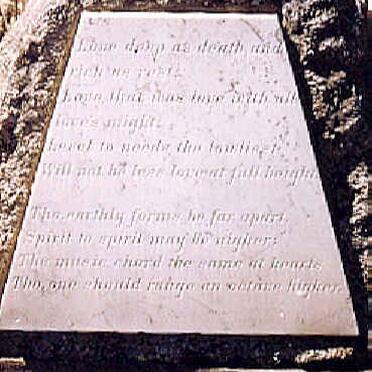 Love deep as death and
rich as rest;
Love that was love with all
love's might;
Level to needs the lowliest
Will not be less love at full height.
Tho, earthly forms be far apart,
Spirit to spirit may be nigher;
The music chord the same at hearts
Tho, one should range an octave higher.